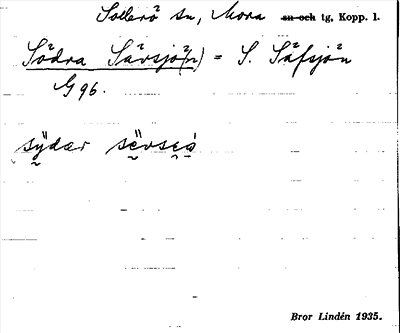 Sollerö sn, Mora sn och tg, Kopp. l.
Södra Sävsjö(n) = S. Säfsjön
G 96.
sÿdær sëvsɛọ
Bror Lindén 1935.